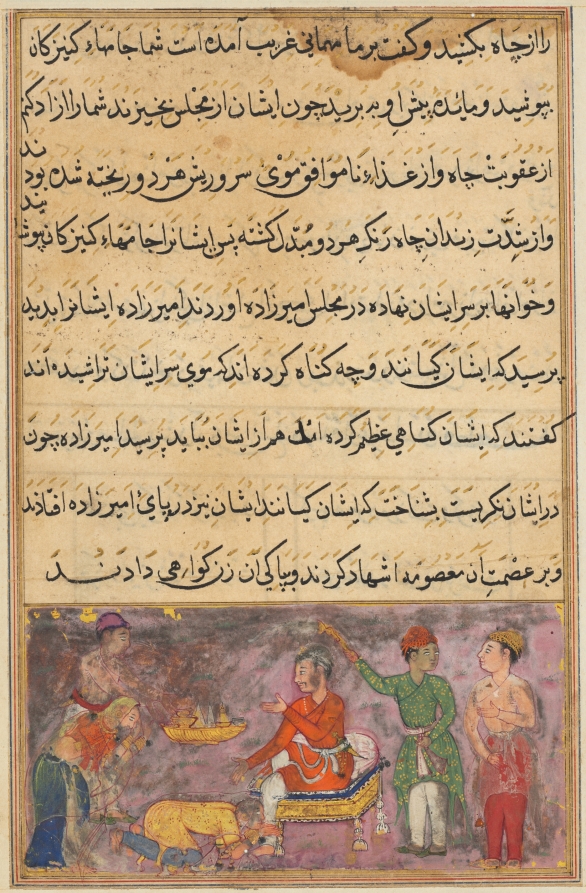 را از چاه بکشید و گفت بر ما مهمانی غریب آمده است شما جامهاء کنیزکان
بپوشید و مائده پیش او به برید چون ایشان از مجلس بخیزند شما را ازاد کنم
از عقوبت چاه و از غذاء ناموافق موی سر و ریش هر دو ریخته شده بود
و از شدّت زندان چاه رنک هر دو مبدّل کشته پس ایشانرا جامهاء کنیزکان پوشا
نیدند
و خوانها بر سر ایشان نهاده در مجلس امیرزاده اوردند امیرزاده ایشانرا بدید
پرسید که ایشان کیانند و چه کناه کرده اند که موی سر ایشان تراشیده اند
کفتند که ایشان کناهی عظیم کرده اند هم از ایشان بباید پرسید امیرزاده چون
در ایشان نکریست بشناخت که ایشان کیانند ایشان نیز در پای امیرزاده افتادند
و بر عصمت آن معصومه اشهاد کردند و بپاکی آن زن کواهی دادند